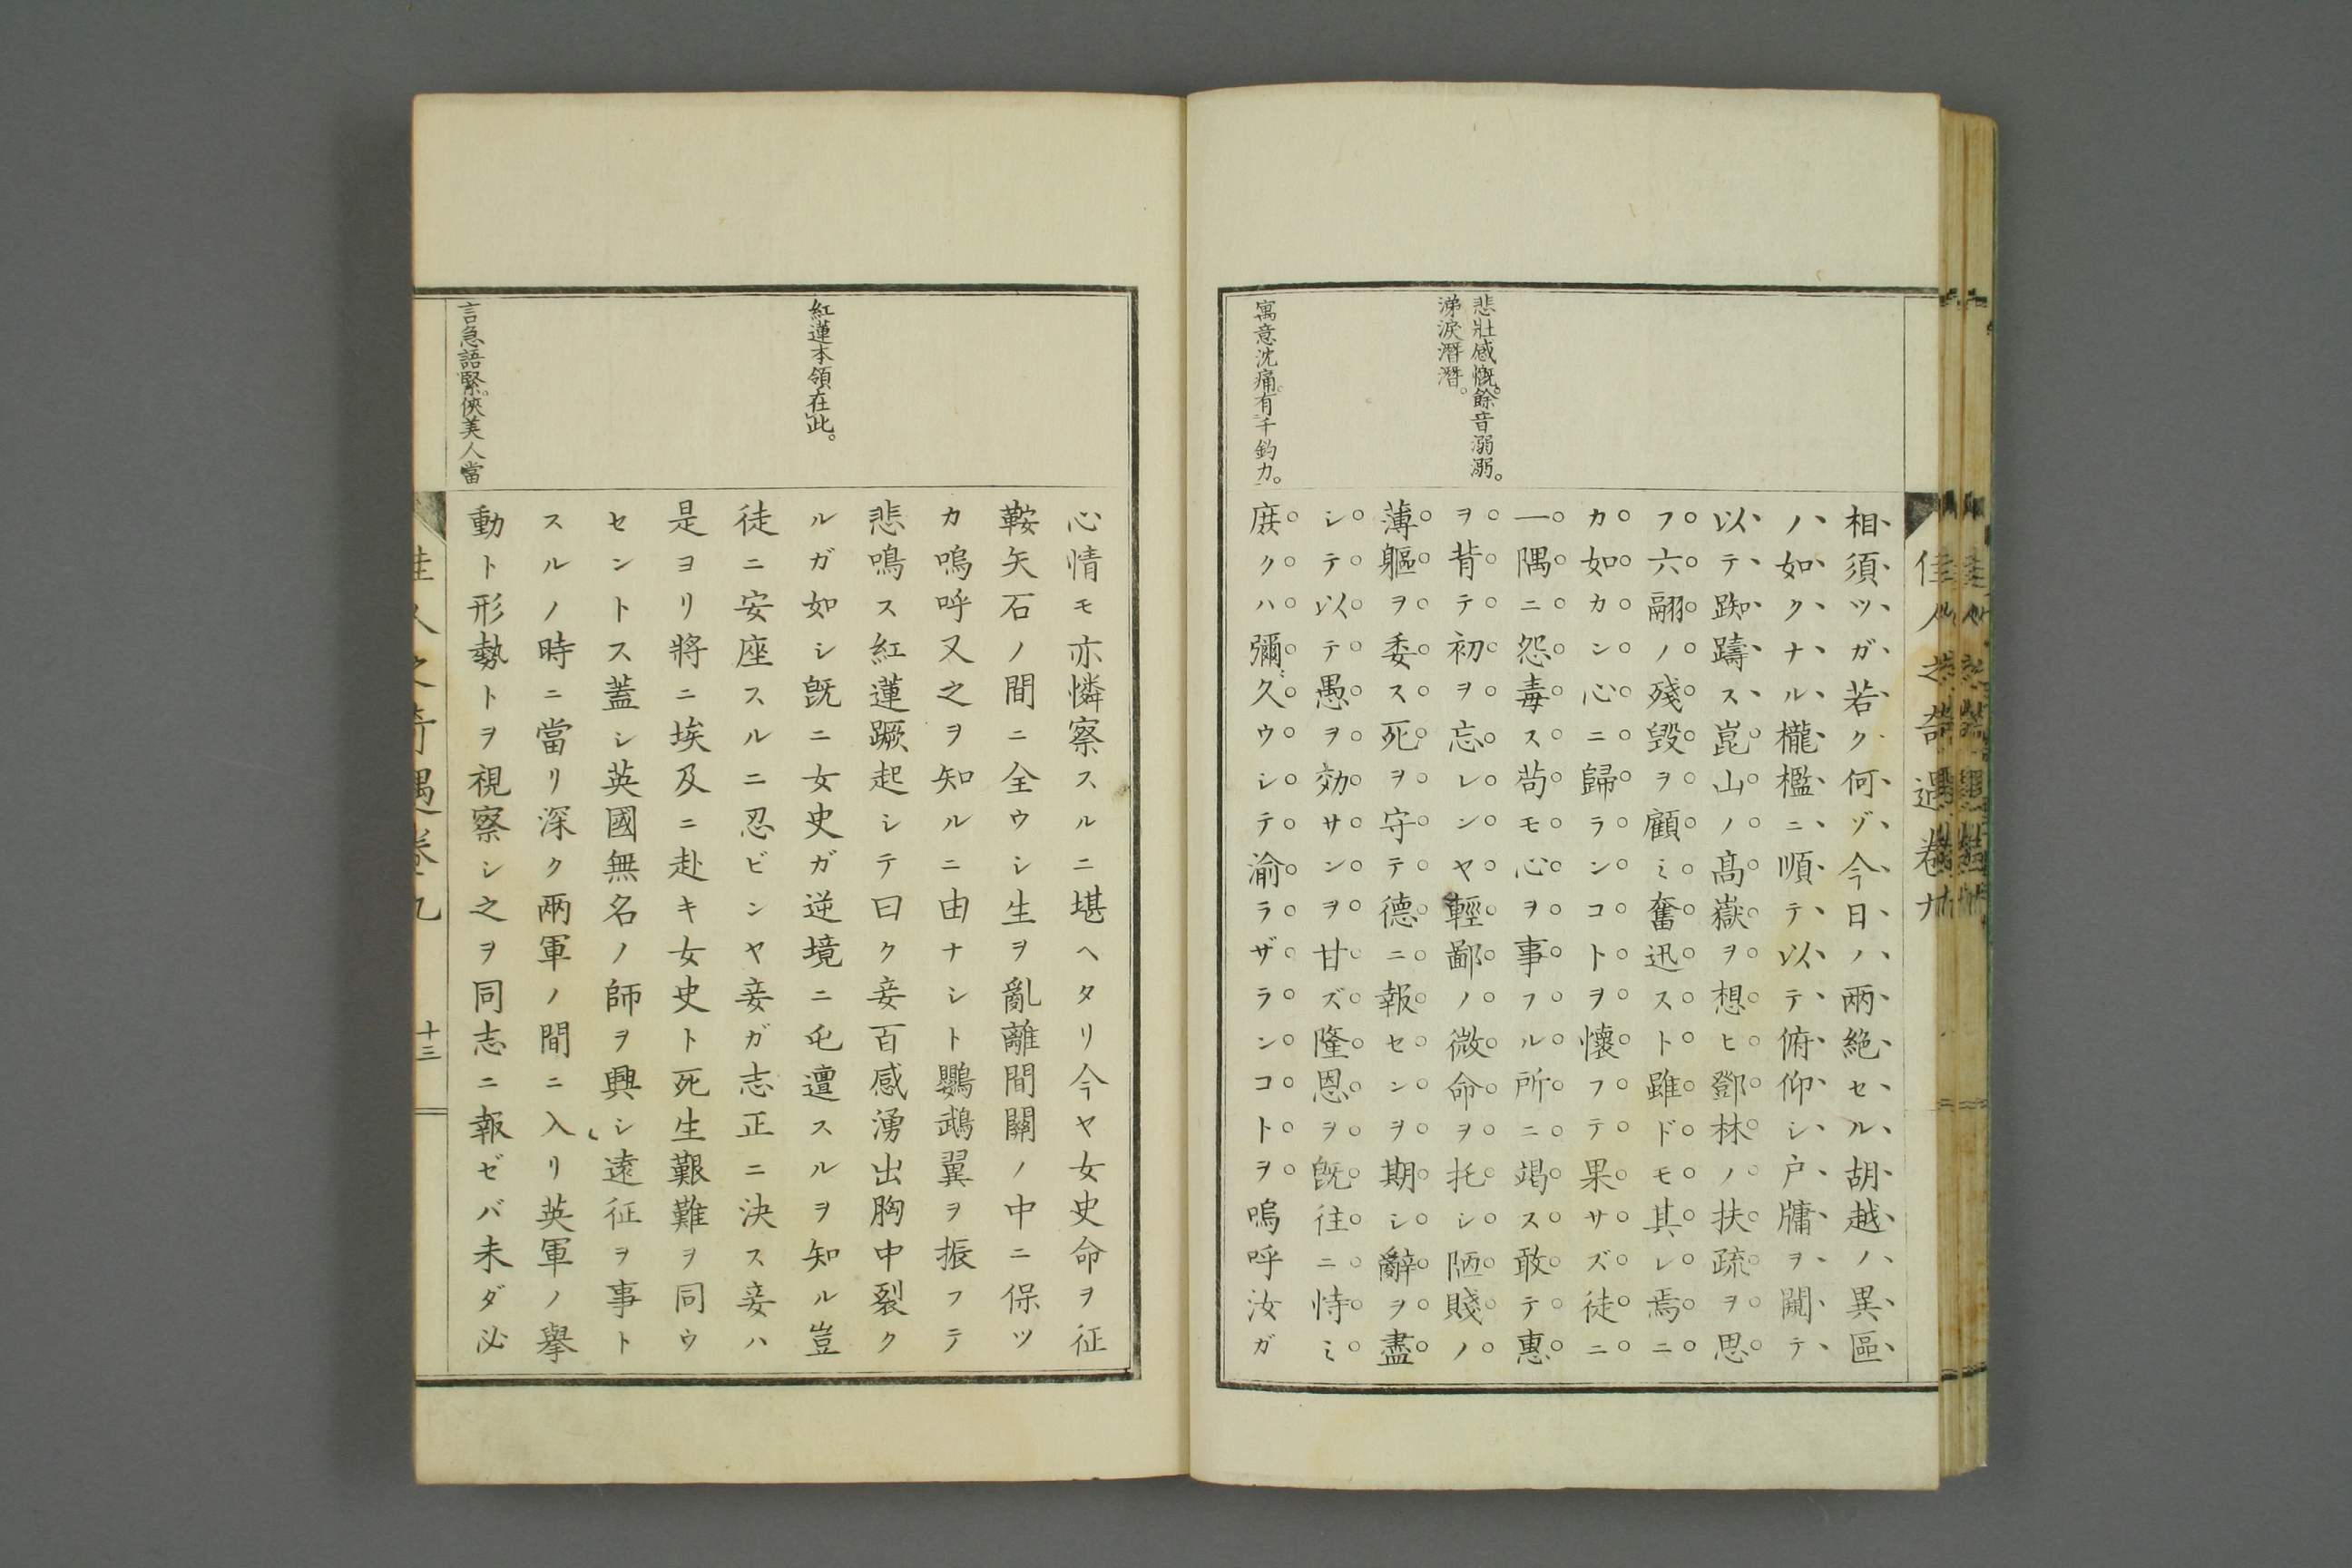 悲壯感慨。餘音溺溺。
涕淚潛潛。
寓意沈痛。有千鈞力。
相須ツガ若ク何ゾ今日ノ兩絶セル胡越ノ異區
ノ如クナル櫳檻ニ順テ以テ俯仰シ戸牖ヲ闚テ
以テ踟躊ス崑山ノ髙嶽ヲ想ヒ鄧林ノ扶疏ヲ思
フ六翮ノ殘毀ヲ顧ミ奮迅スト雖ドモ其レ焉ニ
カ如カン心ニ歸ランコトヲ懷フテ果サズ徒ニ
一隅ニ怨毒ス苟モ心ヲ事フル所ニ竭ス敢テ惠
ヲ背テ初ヲ忘レンヤ輕鄙ノ微命ヲ托シ陋賤ノ
薄軀ヲ委ス死ヲ守テ德ニ報センヲ期シ辭ヲ盡
シテ以テ愚ヲ効サンヲ甘ズ隆恩ヲ既往ニ恃ミ
庶クハ彌久ウシテ渝ラザランコトヲ嗚呼汝ガ
佳人之奇遇卷九
紅蓮本領在此。
言急語緊。俠美人當
心情モ亦憐察スルニ堪ヘタリ今ヤ女史命ヲ征
鞍矢石ノ間ニ全ウシ生ヲ亂離間關ノ中ニ保ツ
カ嗚呼又之ヲ知ルニ由ナシト鸚鵡翼ヲ振フテ
悲鳴ス紅蓮蹶起シテ曰ク妾百感湧出胸中裂ク
ルガ如シ既ニ女史ガ逆境ニ屯邅スルヲ知ル豈
徒ニ安座スルニ忍ビンヤ妾ガ志正ニ決ス妾ハ
是ヨリ將ニ埃及ニ赴キ女史ト死生艱難ヲ同ウ
セントス蓋シ英國無名ノ師ヲ興シ遠征ヲ事ト
スルノ時ニ當リ深ク兩軍ノ間ニ入リ英軍ノ擧
動ト形勢トヲ視察シ之ヲ同志ニ報ゼバ未ダ必
佳人之奇遇卷九
十三